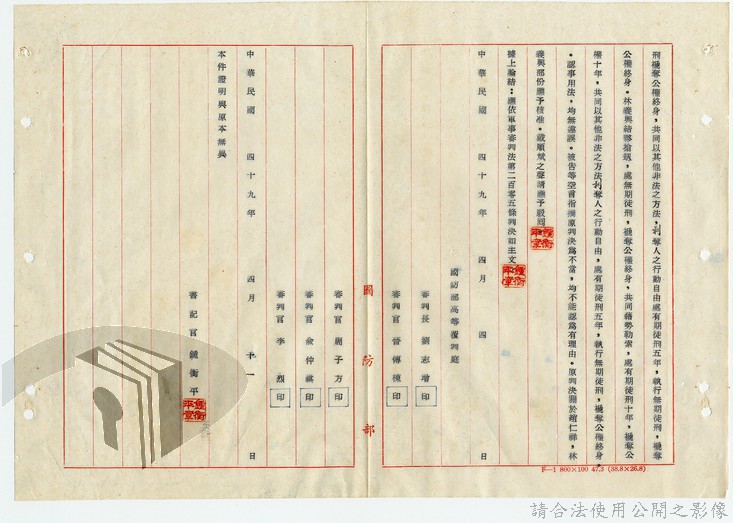 刑褫奪公權終身，共同以其他非法之方法，剝奪人之行動自由處有期徒刑五年，執行無期徒刑，褫奪
公權終身。林義興結夥搶刼，處無期徒刑，褫奪公權終身，共同藉勢勒索，處有期徒刑十年，褫奪公
權十年，共同以其他非法之方法剝奪人之行動自由，處有期徒刑五年，執行無期徒刑，褫奪公權終身
。認事用法，均無違誤。被告等空言指摘原判決為不當，均不能認為有理由。原判決關於 仁祥，林
義興部份應予核准。戴順斌之聲請應予駁回。
據上論結：應依軍事審判法第二百零五條判決如主文
中華民國 四十九年 四月 四 日
國防部高等覆判庭
審判長 劉志增
審判官 曾傳棟 印
審判官 胡予方 印
審判官 俞仲祺 印
審判官 李烈 印
中華民國 四十九年 四月 十一 日
本件證明與原本無異
書記官 衡平
國防部
F—1 800×100 47.3 (38.8×26.8)
請合法使用公開之影像